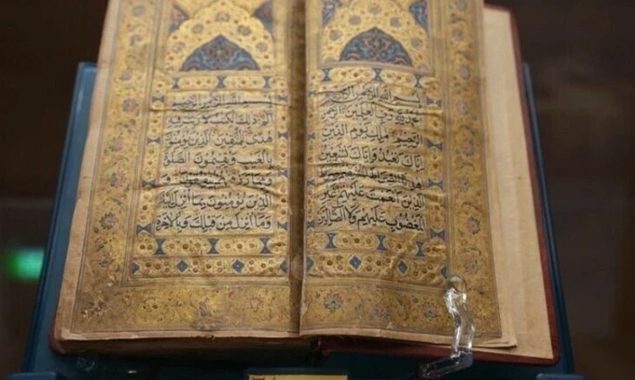 بسم الله الرحمن الرحيم
الحمد لله رب العلمين الرحمن
الرحيم ملك يوم الدين
اياك نعبد واياك نستعين
اهدنا الصراط المستقيم صراط
الذين انعمت عليهم غير
المغضوب عليهم ولا الضالين
بسم الله الرحمن الرحيم
الم ذلك الكتب لا ريب فيه
هدى للمتقين الذين يؤمنون
بالغيب ويقيمون الصلوة
ومما رزقنهم ينفقون و
الذين يؤمنون بما انزل اليك
وما انزل من قبلك وبالاخرة